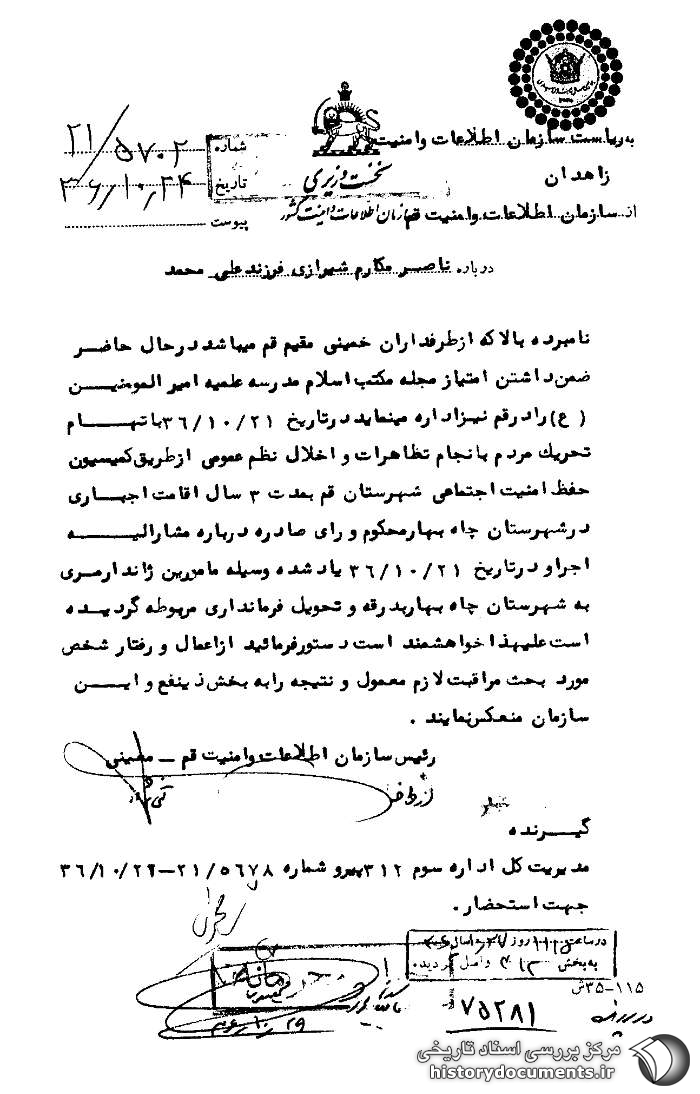 به ریاست سازمان اطلاعات وامنیت
زاهدان
از سازمان اطلاعات وامنیت قم
نخست وزیری
سازمان اطلاعات وامنیت کشور
شماره ۲۱/۵۷۰۲
تاریخ ۳۶/۱۰/۲۴
پیوست
درباره ناصر مکارم شیرازی فرزند علی محمد
نامبرده بالا که از طرفداران خمینی مقیم قم میباشد در حال حاضر
ضمن داشتن امتیاز مجله مکتب اسلام مدرسه علمیه امیر المومنین
(ع) را در قم نیز اداره مینماید در تاریخ ۳۶/۱۰/۲۱ با تهام
تحریک مردم با نجام تظاهرات و اخلال نظم عمومی از طریق کمیسیون
حفظ امنیت اجتماعی شهرستان قم بمدت ۳ سال اقامت اجباری
در شهرستان چاه بهار محکوم و رای صادره درباره مشارالیه
اجرا و در تاریخ ۳۶/۱۰/۲۱ یاد شده وسیله مامورین ژاندارمری
به شهرستان چاه بهار بدرقه و تحویل فرمانداری مربوطه گردیده
است علیهذا خواهشمند است دستور فرمائید از اعمال و رفتار شخص
مورد بحث مراقبت لازم معمول و نتیجه را به بخش ذینفع و این
سازمان منعکس نمایند .
رئیس سازمان اطلاعات وامنیت قم – معینی
از طرف
گیرنده
مدیریت کل اداره سوم ۳۱۲ پیرو شماره ۲۱/۵۶۷۸–۳۶/۱۰/۲۲
جهت استحضار .
در ساعت روز
به بخش ۳۱۲ واصل گردیده
۳۵–۱۱۵ش
۷۵۲۸۱
مرکز بررسی اسناد تاریخی
historydocuments.ir